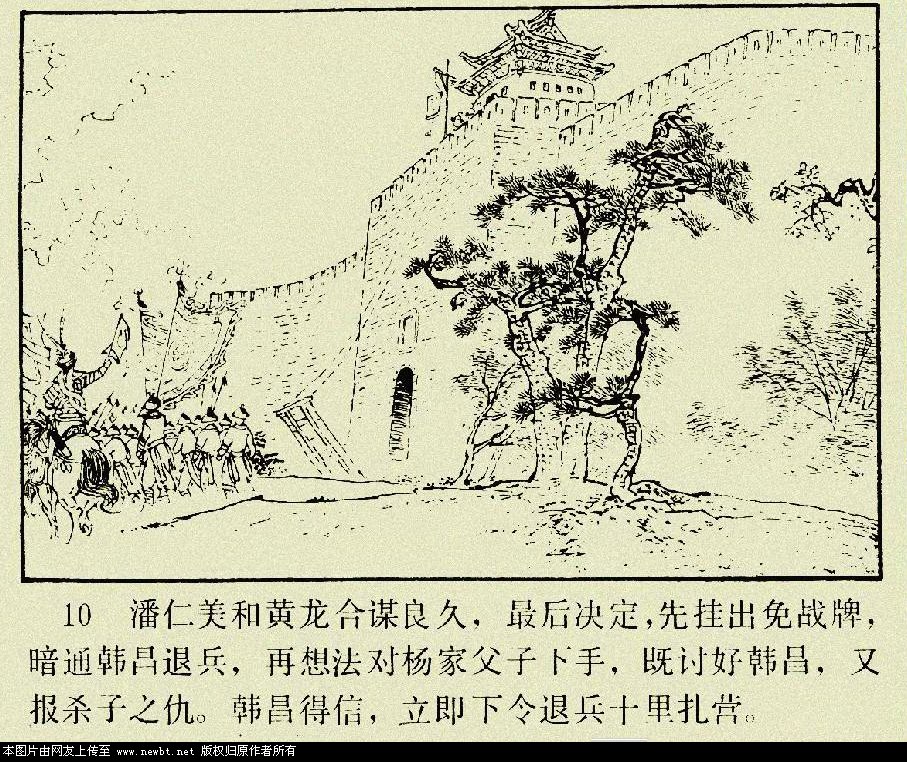 10 潘仁美和黄龙合谋良久，最后决定,先挂出免战牌，
暗通韩昌退兵，再想法对杨家父子下手，既讨好韩昌，又
报杀子之仇。韩昌得信，立即下令退兵十里扎营。
本图片由网友上传至 www.newbt.net 版权归原作者所有